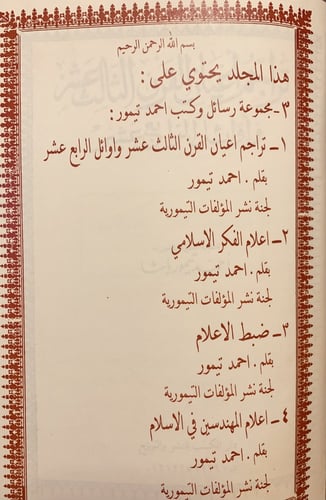 بسم الله الرحمن الرحيم
هذا المجلد يحتوي على :
٣- مجموعة رسائل وكتب احمد تيمور :
١- تراجم اعيان القرن الثالث عشر واوائل الرابع عشر
بقلم . احمد تيمور
لجنة نشر المؤلفات التيمورية
٢- اعلام الفكر الاسلامي
بقلم . احمد تيمور
لجنة نشر المؤلفات التيمورية
٣- ضبط الاعلام
بقلم . احمد تيمور
لجنة نشر المؤلفات التيمورية
٤- اعلام المهندسين في الاسلام
بقلم . احمد تيمور
لجنة نشر المؤلفات التيمورية